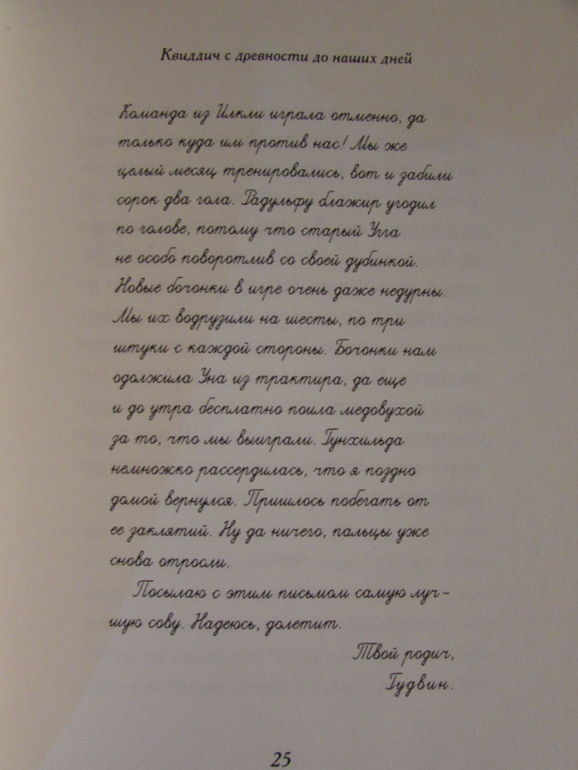 Квиддич с древности до наших дней
Команда из Илкли играла отменно, да
только куда им против нас! Мы же
целый месяц тренировались, вот и забили
сорок два гола. Радульфу блажир угодил
по голове, потому что старый Угга
не особо поворотлив со своей дубинкой.
Новые бочонки в игре очень даже недурны.
Мы их водрузили на шесты, по три
штуки с каждой стороны. Бочонки нам
одолжила Уна из трактира, да еще
и до утра бесплатно поила медовухой
за то, что мы выиграли. Гунхильда
немножко рассердилась, что я поздно
домой вернулся. Пришлось побегать от
ее заклятий. Ну да ничего, пальцы уже
снова отросли.
Посылаю с этим письмом самую луч-
шую сову. Надеюсь, долетит.
Твой родич,
Гудвин.
25